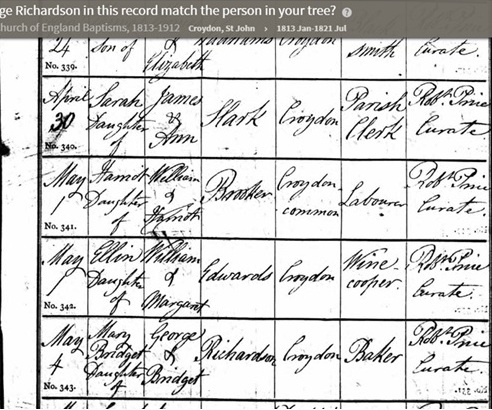 ge Richardson in this record match the person in your tree? ?
hurch of England Baptisms, 1813-1912 Croydon, St John › 1813 Jan-1821 Jul
24 Son of & Croydon smith Curate
Elizabeth
No. 339.
April Sarah James Parish Robt Price
30 Daughter & Croydon Clerk Curate
of Ann
No. 340.
May Harriot William Brooker Croydon Labourer Robt Price
1 Daughter & common Curate.
of Harriot
No. 341.
May Ellin William Edwards Croydon Wine Robt Price
1 Daughter & cooper. Curate.
of Margaret
No. 342.
May Mary George Robt Price
4 Bridget & Richardson Croydon Baker Curate.
Daughter Bridget
of
No. 343.